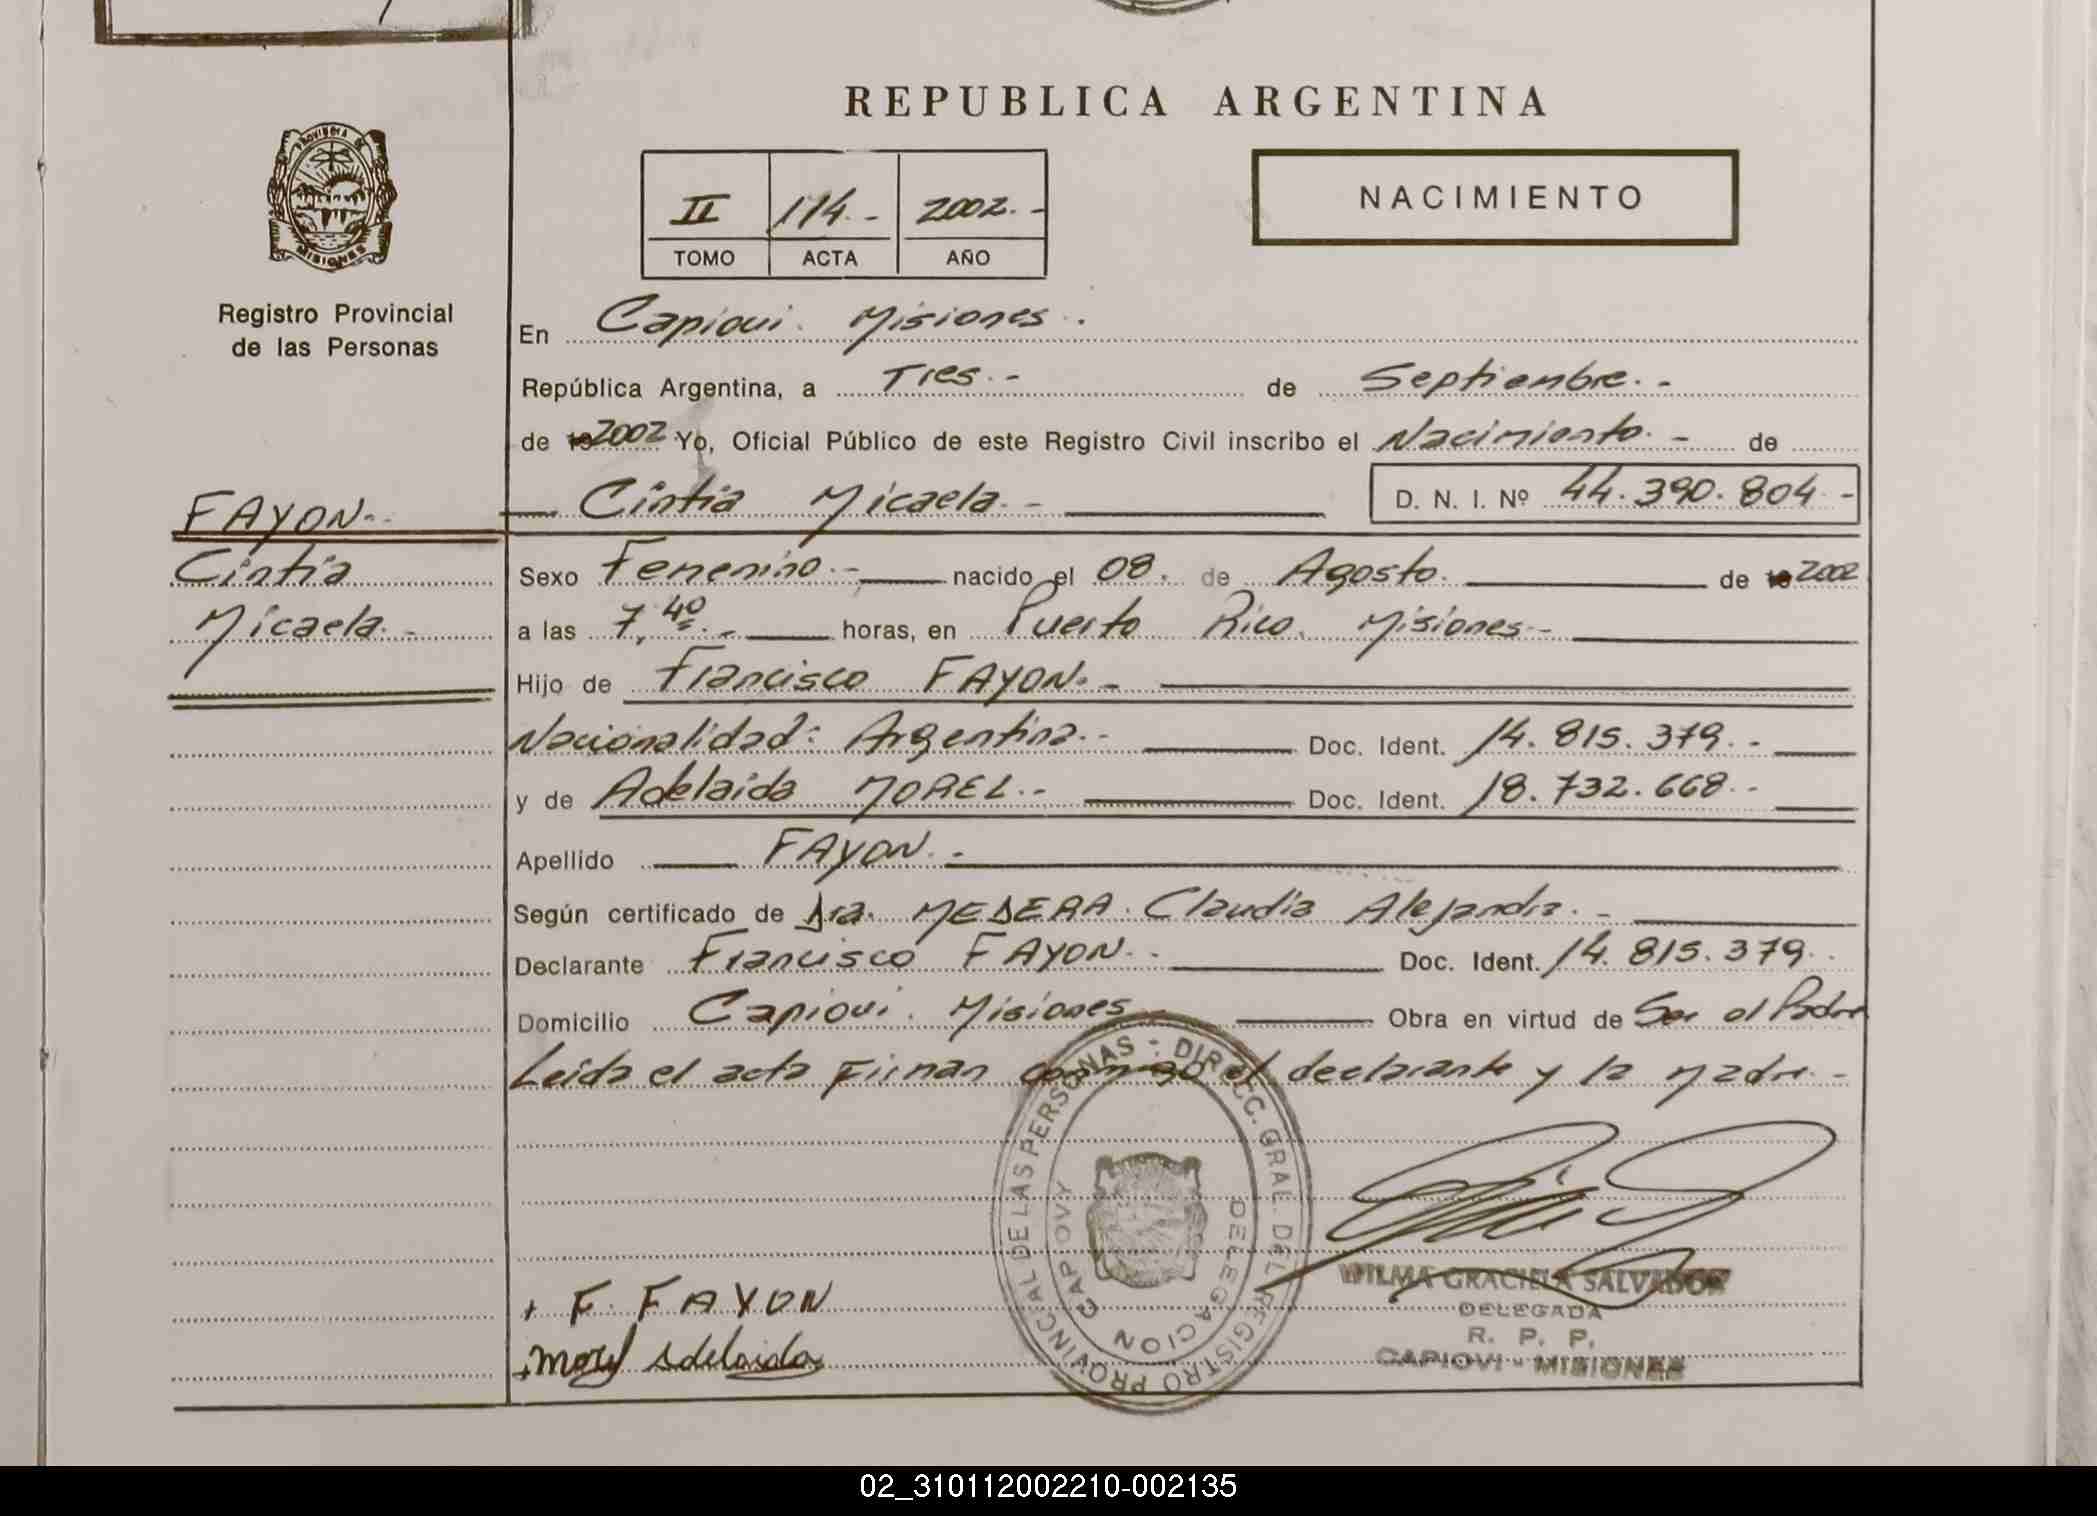 REPUBLICA ARGENTINA
PROVINCIA DE MISIONES
Registro Provincial
de las Personas
II 114.- 2002.-
TOMO ACTA AÑO
NACIMIENTO
En Capiovi. Misiones.
República Argentina, a Tres.- de Septiembre.-
de 19 2002 Yo, Oficial Público de este Registro Civil inscribo el Nacimiento.- de
Cintia Micaela.- D. N. I. Nº 44.390.804.-
FAYON.-
Cintia
Micaela.-
Sexo Femenino.- nacido el 08. de Agosto. de 19 2002
a las 7,40.- horas, en Puerto Rico. Misiones.-
Hijo de Francisco FAYON.-
Nacionalidad: Argentina.- Doc. Ident. 14.815.379.-
y de Adelaida MOREL.- Doc. Ident. 18.732.668.-
Apellido FAYON.-
Según certificado de Dra. MEDERA. Claudia Alejandra.-
Declarante Francisco FAYON.- Doc. Ident. 14.815.379.
Domicilio Capiovi. Misiones Obra en virtud de Ser el Padre
Leida el acta Firman conmigo el declarante y la madre.-
DIRECC. GRAL. DEL REGISTRO PROVINCIAL DE LAS PERSONAS
DELEGACION CAPIOVY
F. FAYON
Morel Adelaida
WILMA GRACIELA SALVADOR
DELEGADA
R. P. P.
CAPIOVI - MISIONES
02_310112002210-002135